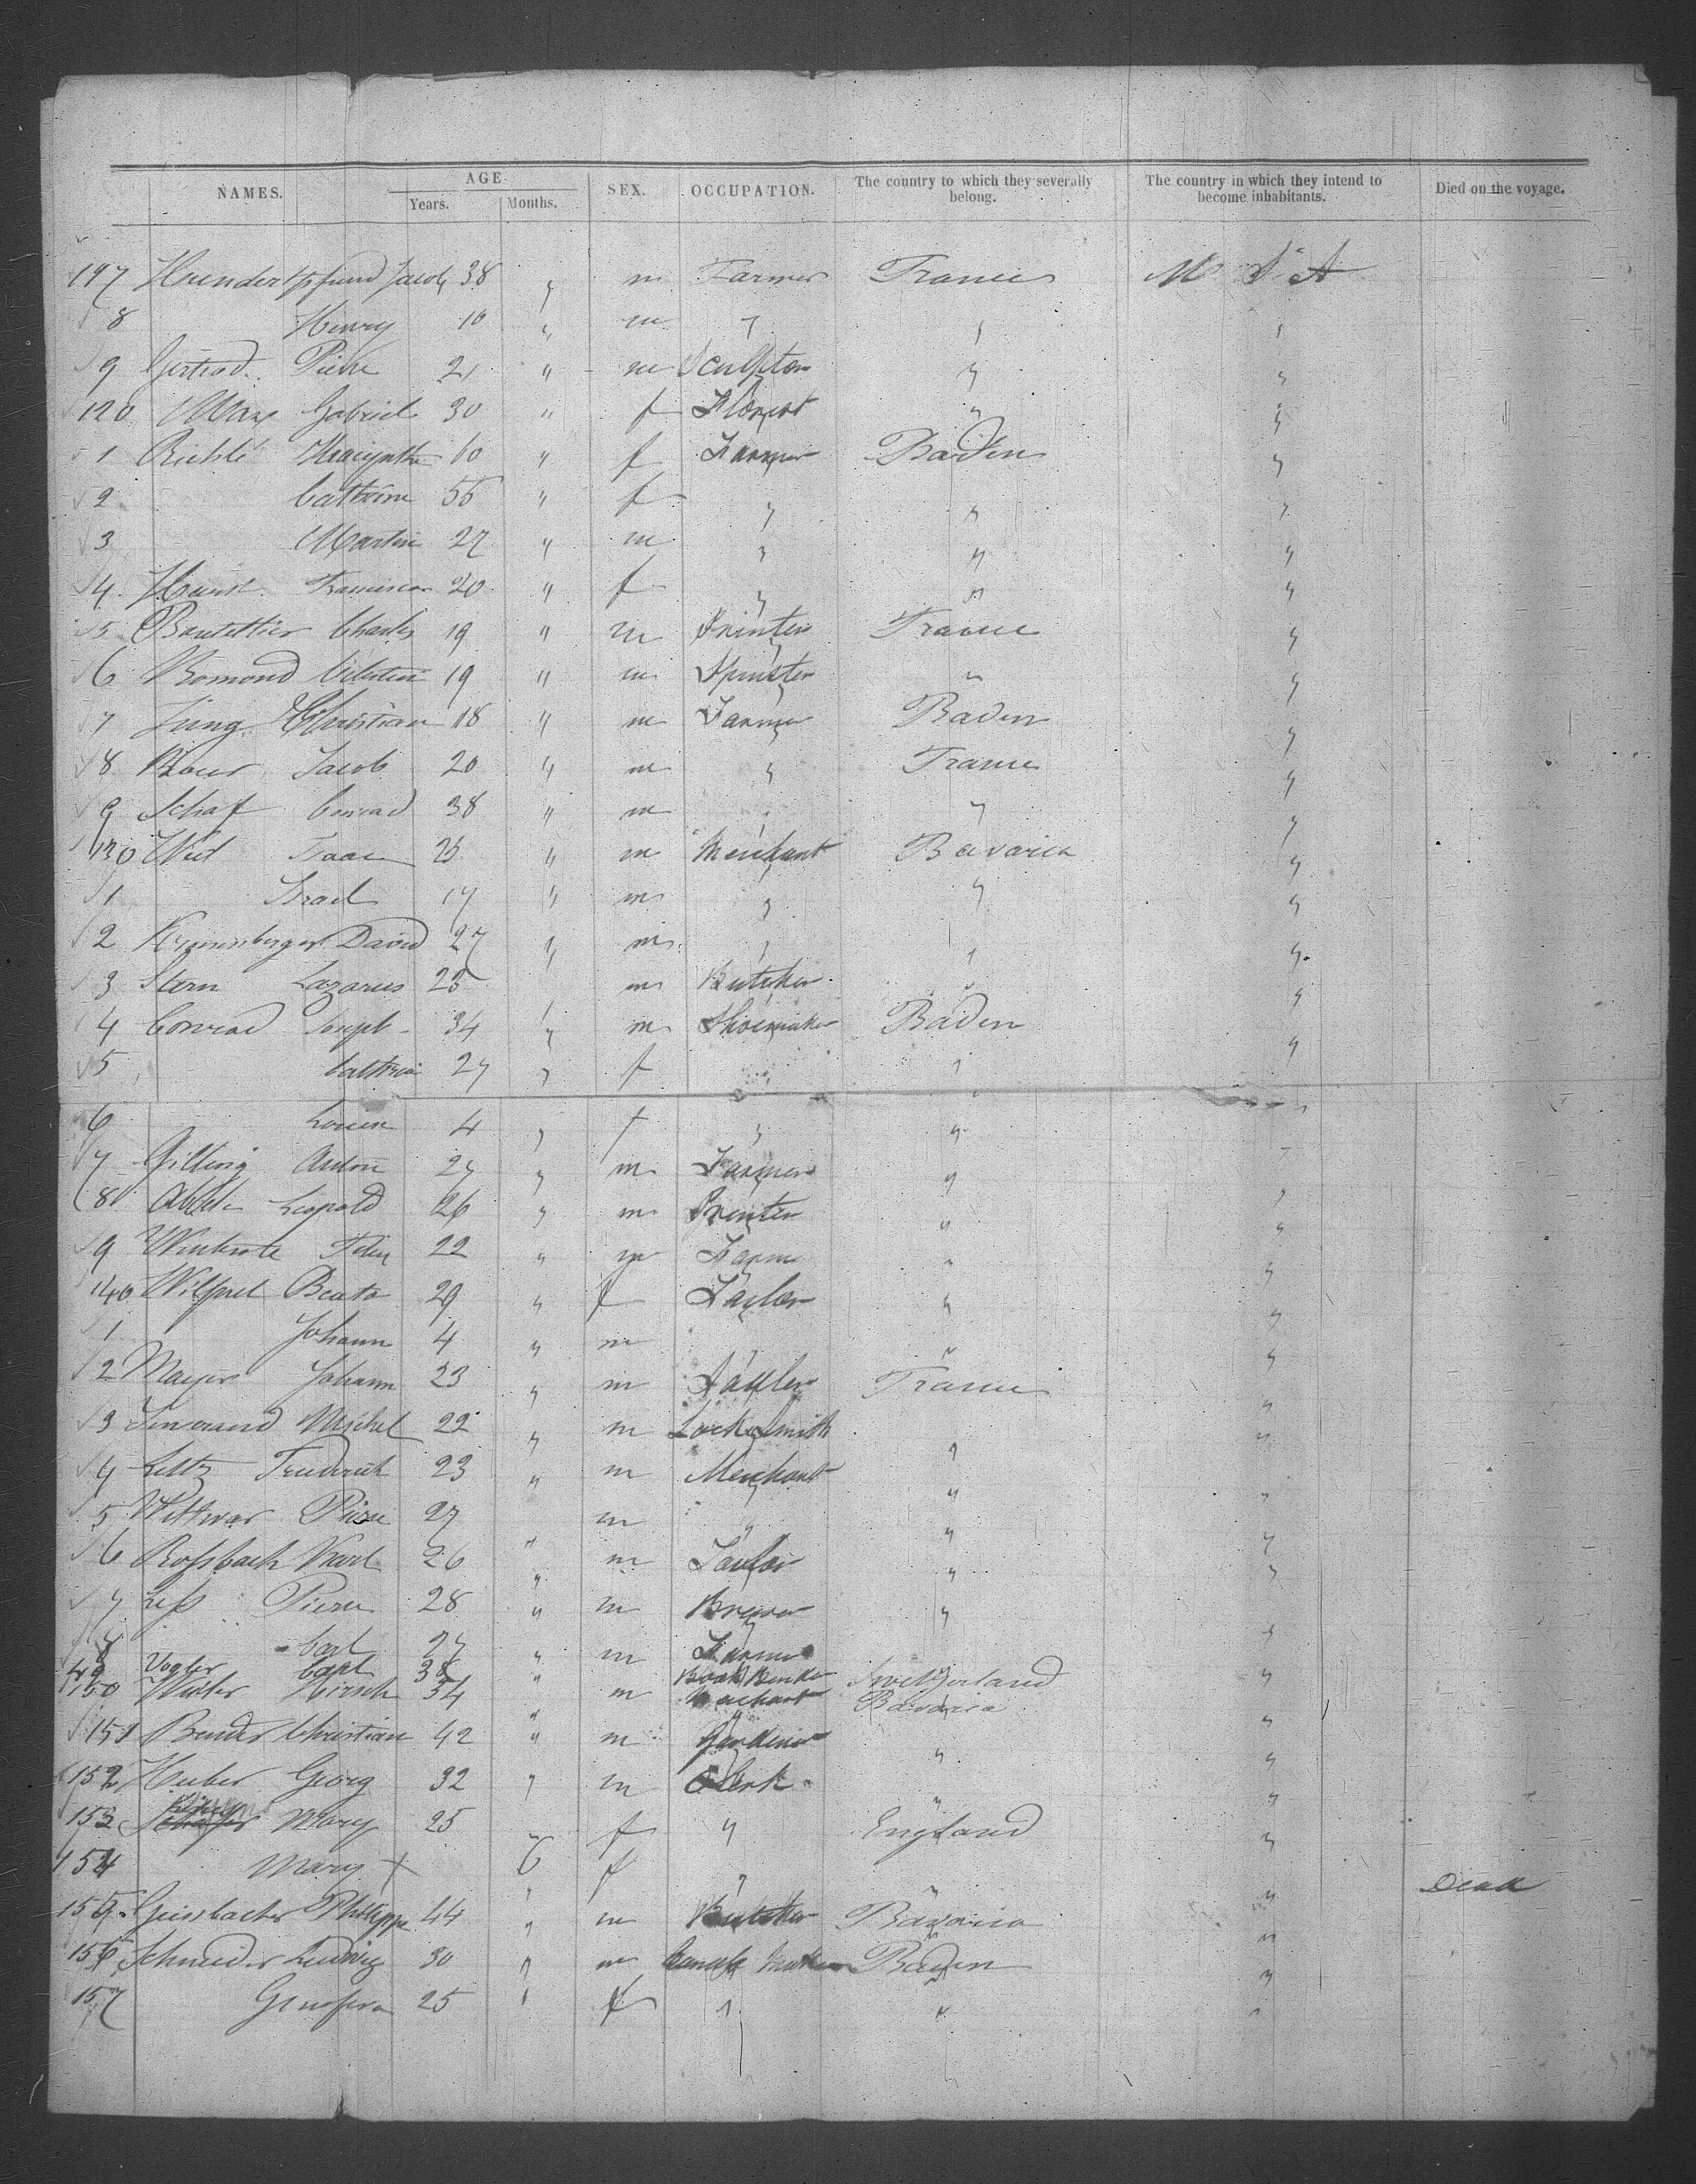 NAMES. AGE Years. Months. SEX. OCCUPATION. The country to which they severally belong. The country in which they intend to become inhabitants. Died on the voyage.
117 Hundertpfund Jacob 38 " m Farmer France U S A
8 Henry 10 " m " " "
9 Pierre 21 " m Sculptor " "
120 Mary Gabriel 30 " f Florist " "
1 Riehle Hiacynthe 60 " f Farmer Baden "
2 Cathrine 55 " f " " "
3 Martin 27 " m " " "
4 Francisca 20 " f " " "
5 Boutellier Charles 19 " m Printer France "
6 Romond 19 " m Spinster " "
7 Jung Christian 18 " m Farmer Baden "
8 Bauer Jacob 20 " m " France "
9 Schaf Conrad 38 " m " " "
130 Weil Isaac 25 " m Merchant Bavaria "
1 Israel 17 " m " " "
2 David 27 " m " " "
3 Stern Lazarus 25 m Butcher " "
4 Conrad Joseph 34 " m Shoemaker Baden "
5 Cathrin 27 " f " " "
6 Louise 4 " f " " "
7 Gilling Anton 27 " m Farmer " "
8 Leopold 26 " m Printer " "
9 22 " m Farm " "
140 Beata 29 " f Taylor " "
1 Johann 4 " m " " "
2 Mayer Johann 23 " m Taylor France "
3 Michel 22 " m Lock Smith " "
4 Frederick 23 " m Merchant " "
5 Wittwer Pierre 27 m " " "
6 Rossbach Karl 26 " m Taylor " "
7 Less Pierre 28 " m Brewer " "
8 Carl 27 " m Farmer "
49 Vogler Carl 38 " Book Binder Switzerland "
150 Hirsch 34 m Merchant Bavaria
151 Bender Christian 42 " m Gardener " "
152 Huber Georg 32 " m Clerk " "
153 Mary 25 " f " England "
154 Mary + 6 f " " " Dead
155 Philippe 44 " m Butcher Bavaria "
156 Schneider Ludwig 30 " m Baden "
157 Genofeva 25 " f " " "